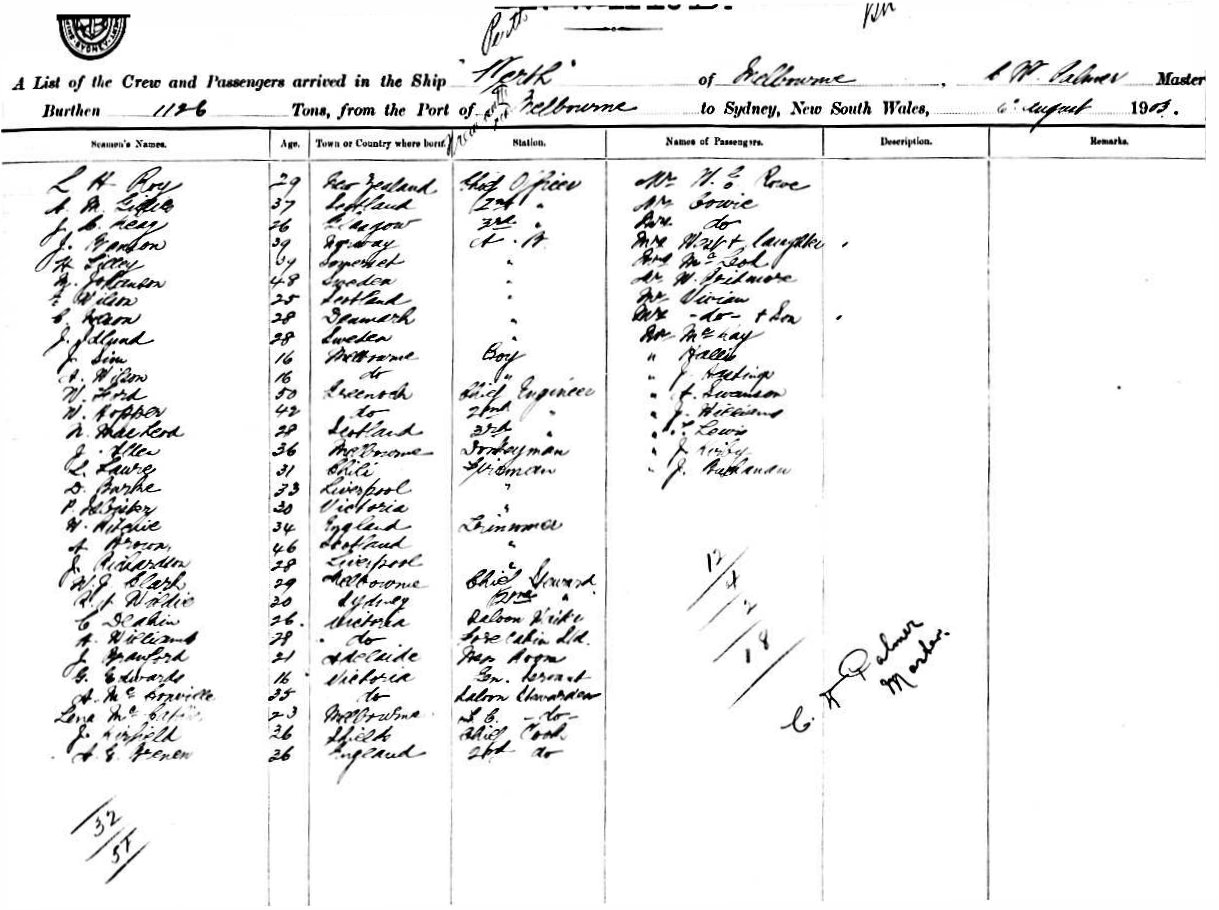 Perth
A List of the Crew and Passengers arrived in the Ship "Perth" of Melbourne, C W. Palmer Master
Burthen 1126 Tons, from the Port of Melbourne to Sydney, New South Wales, 6th August 1903.
Seamen's Names. Age. Town or Country where born. Station. Names of Passengers. Description. Remarks.
L H Roy 29 New Zealand Chief Officer Mr H. E Rowe
A. M. Gillies 37 Scotland 2nd " Mr Cowie
26 Glasgow 3rd " Mrs do
J. Hanson 39 Norway A. B. Mrs West + daughter
H Lilley 39 Somerset " Mrs McLeod
Johanson 48 Sweden " Mr W. Pridmore
Wilson 25 Scotland " Mr Vivian
C 28 Denmark " Mrs - do - + Son
J. Edlund 28 Sweden Mr McKay
J. Sim 16 Melbourne Boy "
A. Wilson 16 do " " J.
W. Ford 50 Greenock Chief Engineer " Swanson
W. Hopper 42 do 2nd " " J. Williams
N. MacLeod 28 Scotland 3rd " " Lewis
J. Allen 36 Melbourne Donkeyman " J Kirby
L. 31 Chili Fireman " J. Buchanan
D. Burke 33 Liverpool "
P. 30 Victoria "
W. Ritchie 34 England Trimmer
A Brown 46 Scotland "
J. Richardson 28 Liverpool "
W. J. Clark 29 Melbourne Chief Steward
30 Sydney 2nd "
C Deakin 26 Victoria Saloon
A. Williams 28 do Fore Cabin Std.
J. 21 Adelaide Mess Room
G. Edwards 16 Victoria Gen. Servant
A. 35 do Saloon Stewardess
Lena 23 Melbourne - do -
J. 26 Shields Chief Cook
A. E. 26 England 2nd do
12
4
2
18
C W Palmer
Master.
32
51